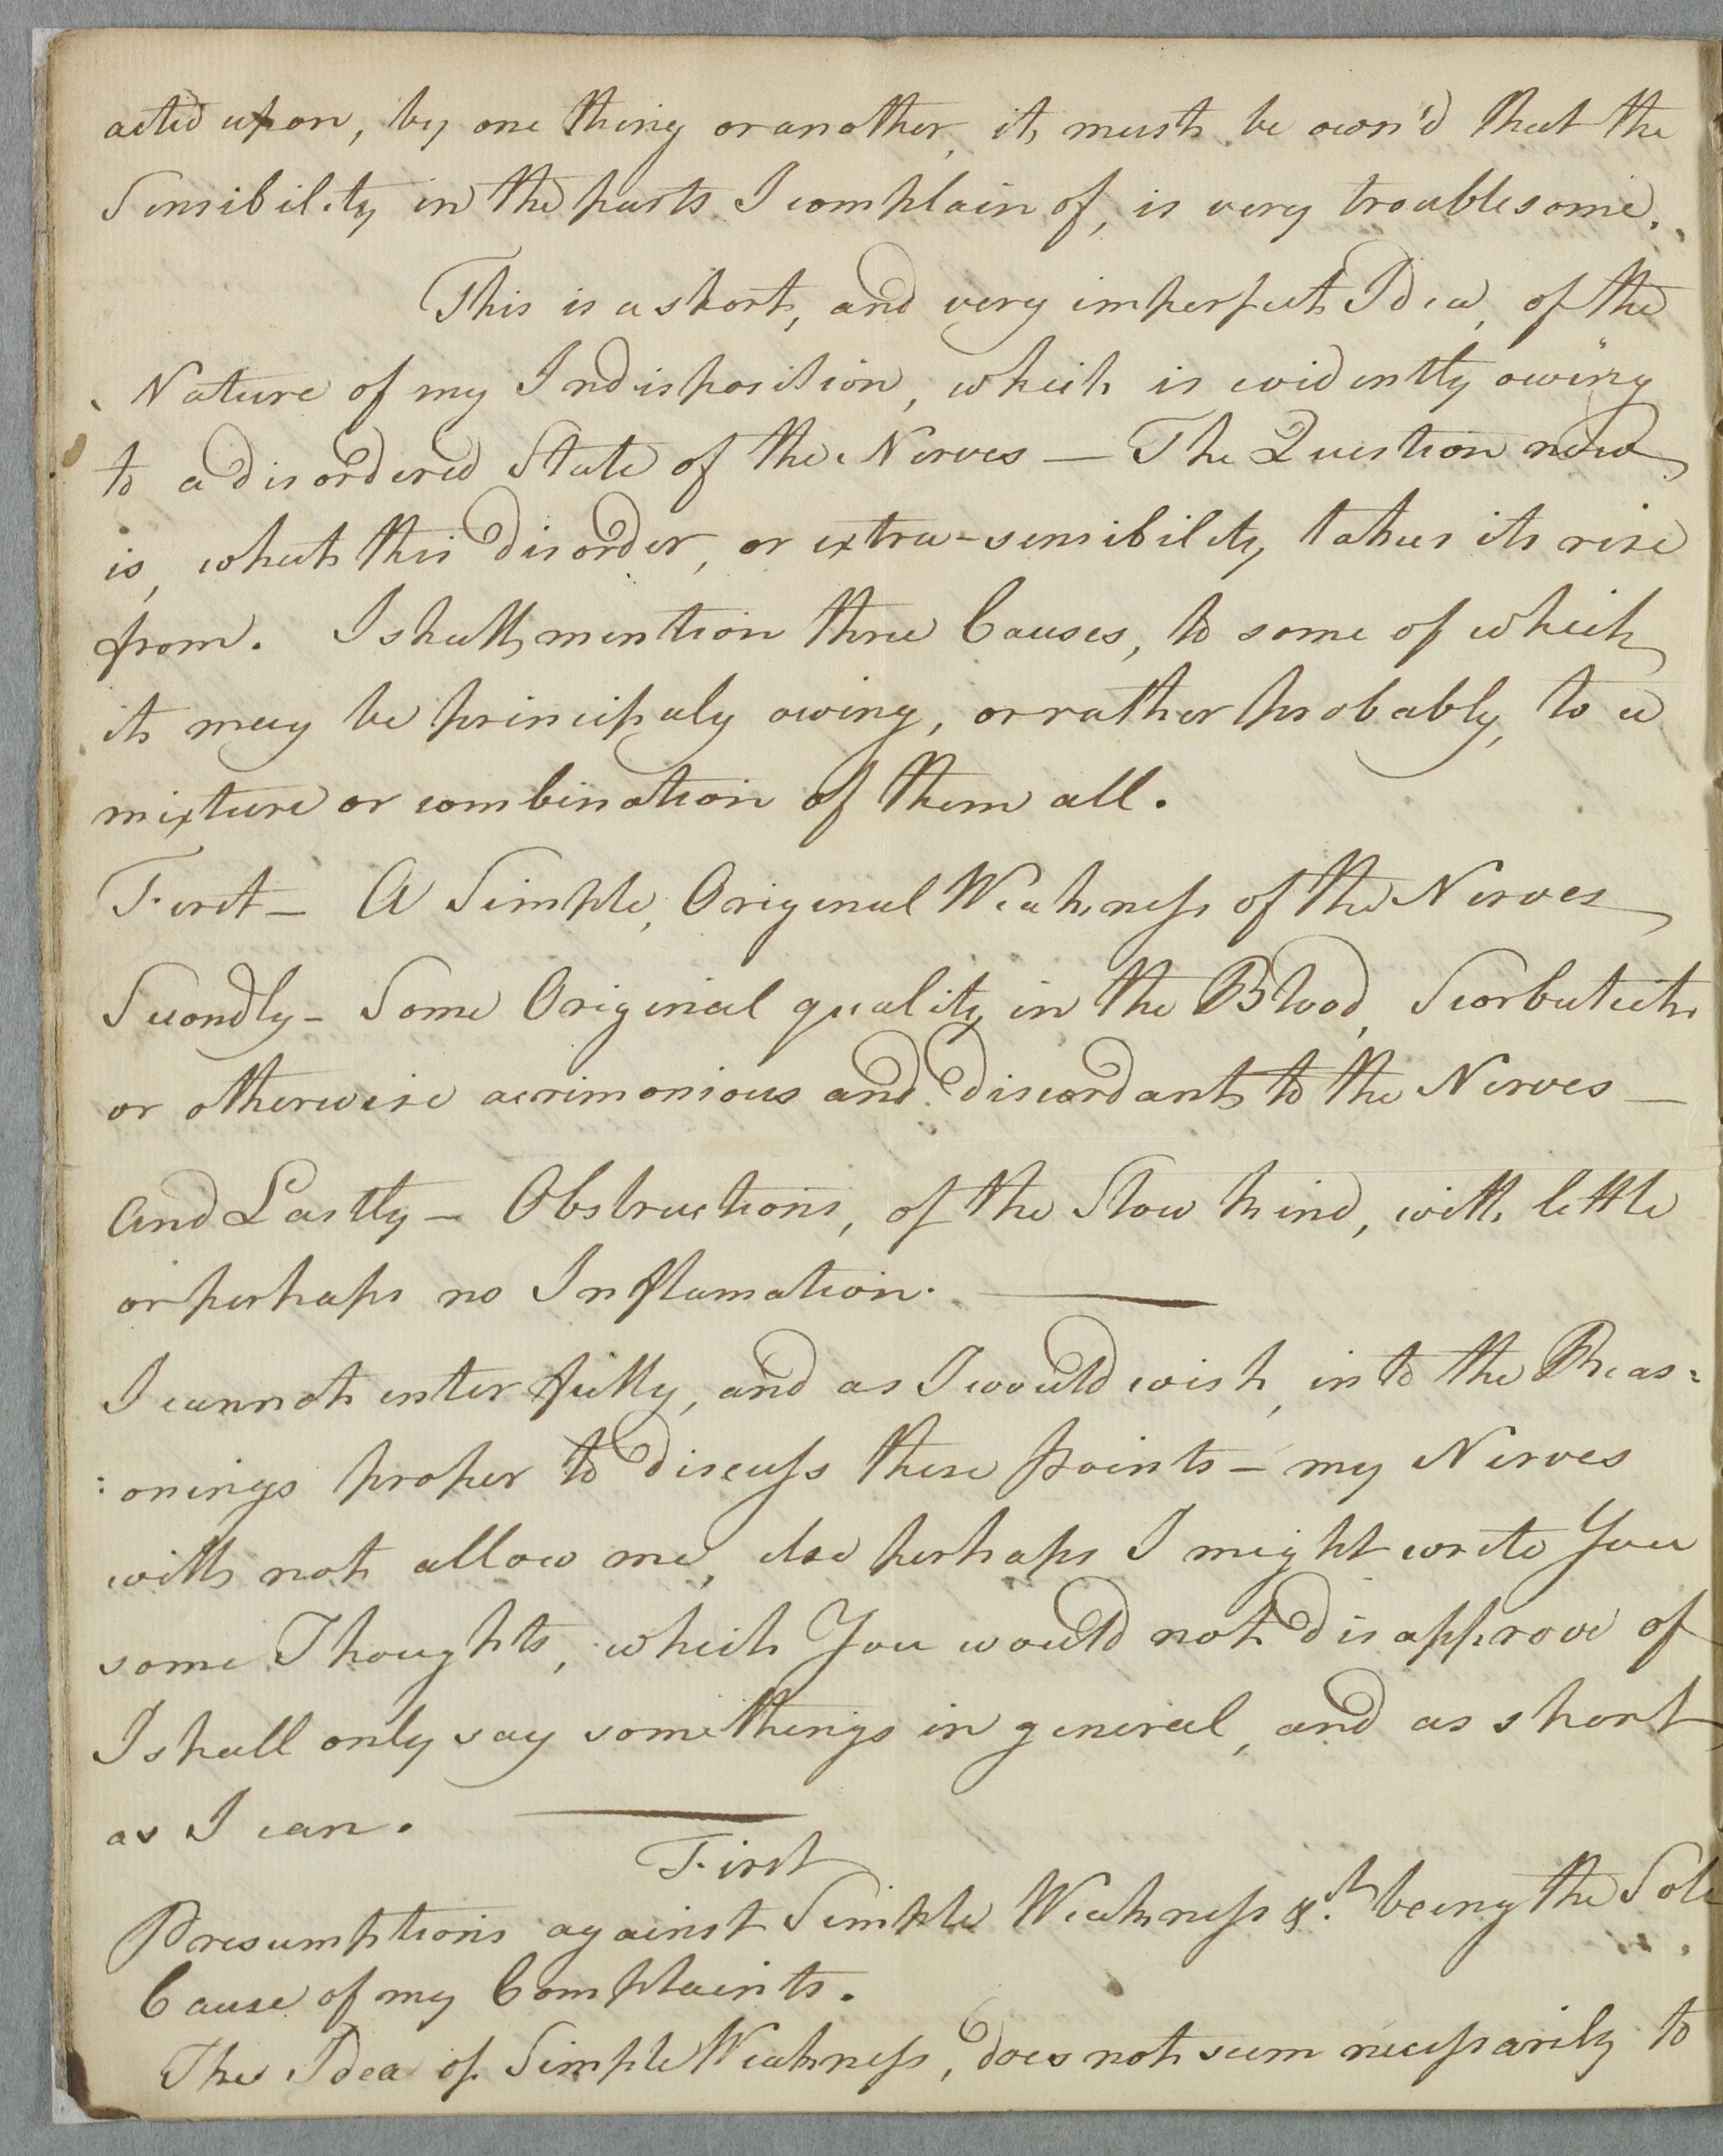 acted upon, by one thing or another, it must be own'd that the
Sensibility in the parts I complain of, is very troublesome.
This is a short, and very imperfect Idea, of the
Nature of my Indisposition, which is evidently owing
to a disordered State of the Nerves — The Question now
is, what this disorder, or extra-sensibility takes its rise
from. I shall mention three Causes, to some of which
it may be principaly owing, or rather probably, to a
mixture or combination of them all.
First — A Simple, Original Weakness of the Nerves
Secondly — Some Original quality in the Blood, Scorbutick
or otherwise acrimonious and discordant to the Nerves —
And Lastly — Obstructions, of the Slow kind, with little
or perhaps no Inflamation. —
I cannot enter fully, and as I would wish, into the Reas:
:onings proper to discuss these points — my Nerves
will not allow me, else perhaps I might write You
some Thoughts, which You would not disapprove of
I shall only say some things in general, and as short
as I can. —
First
Presumptions against Simple Weakness &c. being the Sole
Cause of my Complaints.
The Idea of Simple Weakness, does not seem necessarily to